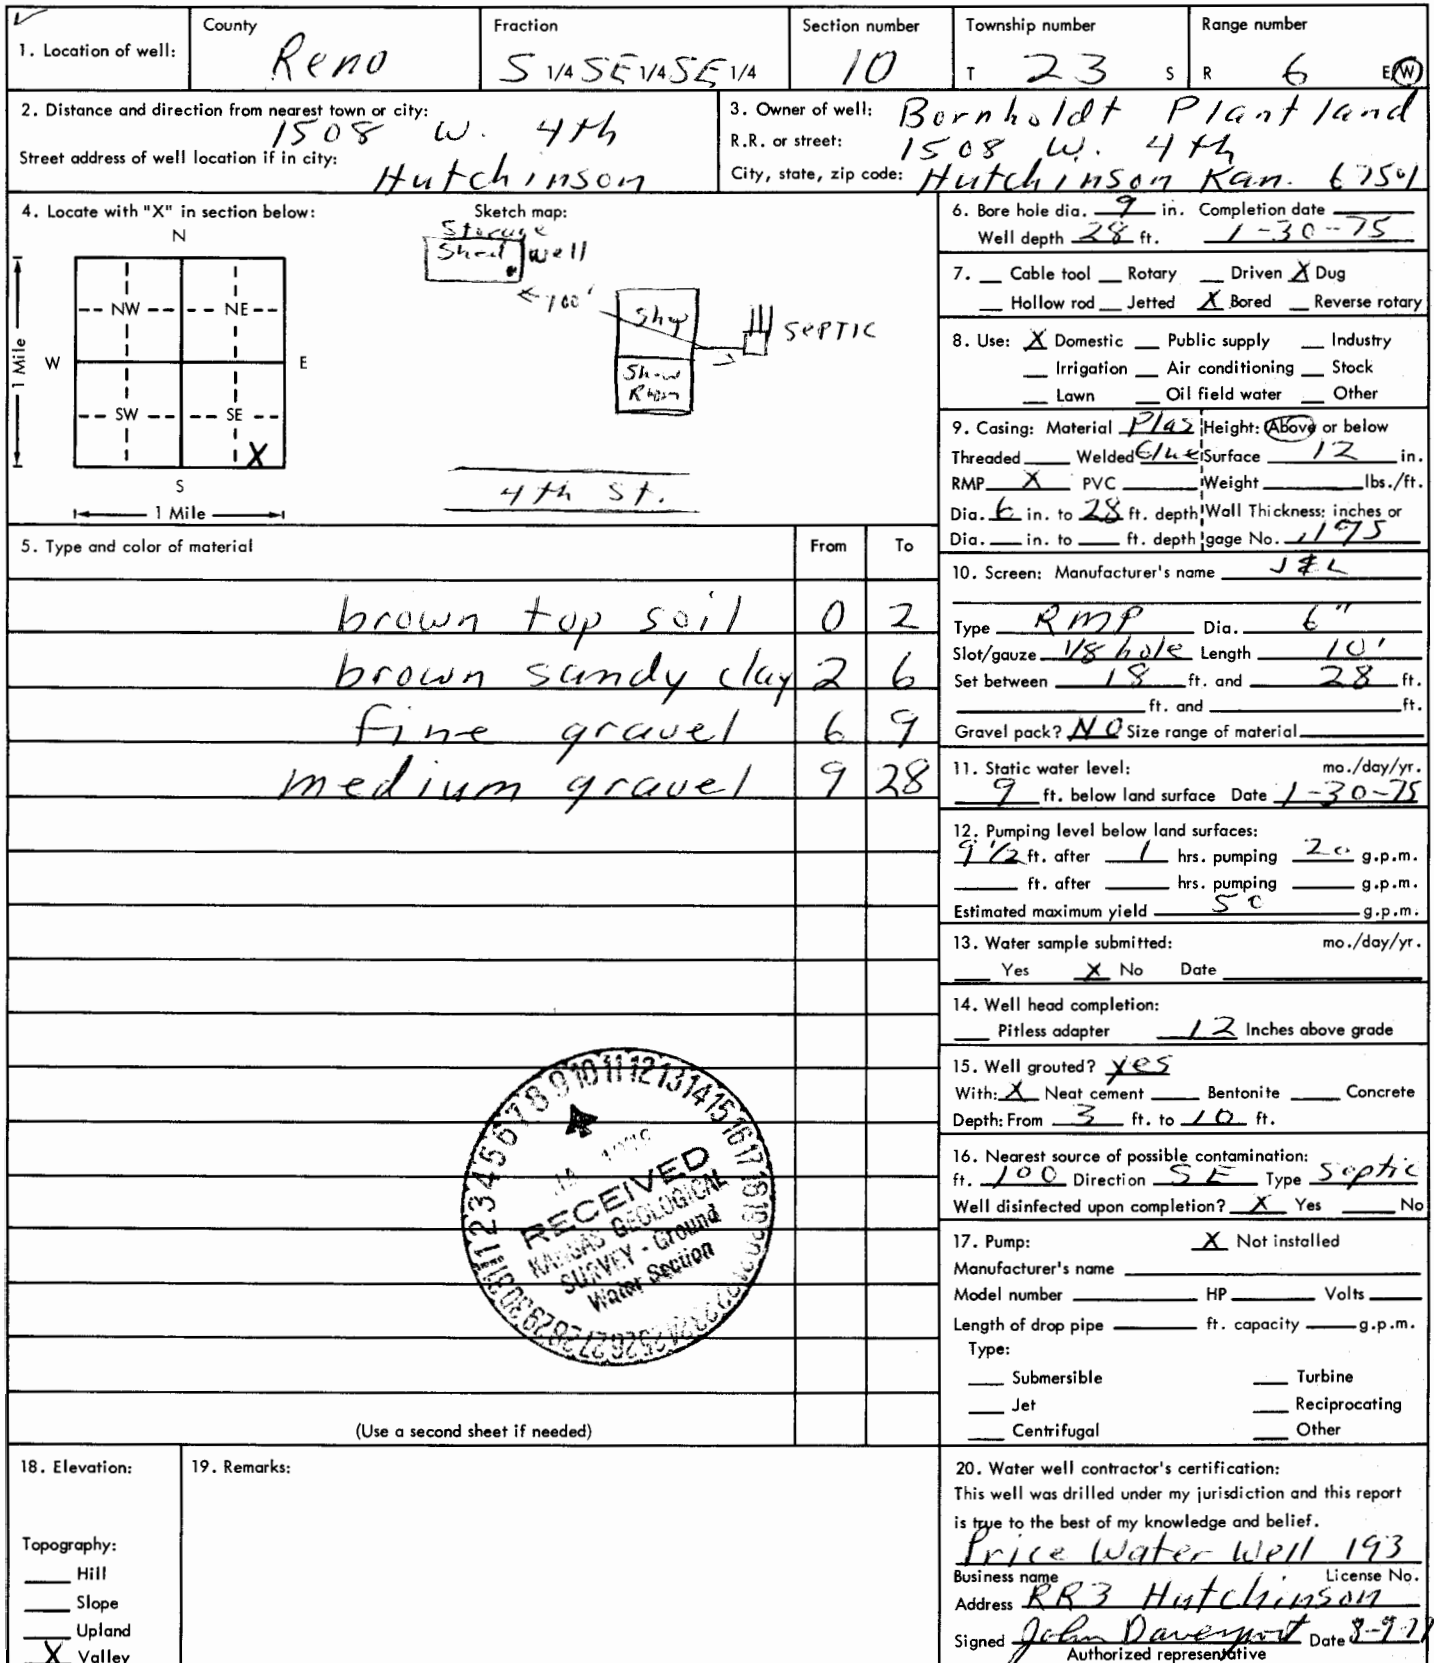 ✓
County Fraction Section number Township number Range number
1. Location of well: Reno S 1/4 SE 1/4 SE 1/4 10 T 23 S R 6 E W
2. Distance and direction from nearest town or city:
1508 W. 4th
Street address of well location if in city:
Hutchinson
3. Owner of well: Bornholdt Plantland
R.R. or street: 1508 W. 4th
City, state, zip code: Hutchinson Kan. 67501
4. Locate with "X" in section below:
N
NW NE
W E
SW SE
X
S
1 Mile
1 Mile
Sketch map:
Storage
Shed well
100'
Shop
SEPTIC
Show
Room
4th St.
5. Type and color of material From To
brown top soil 0 2
brown sandy clay 2 6
fine gravel 6 9
medium gravel 9 28
1 2 3 4 5 6 7 8 9 10 11 12 13 14 15 16 17 18 19 20 21 22 23 24 25 26 27 28 29 30 31
RECEIVED
KANSAS GEOLOGICAL
SURVEY - Ground
Water Section
(Use a second sheet if needed)
6. Bore hole dia. 9 in. Completion date
Well depth 28 ft. 1-30-75
7. Cable tool Rotary Driven X Dug
Hollow rod Jetted X Bored Reverse rotary
8. Use: X Domestic Public supply Industry
Irrigation Air conditioning Stock
Lawn Oil field water Other
9. Casing: Material Plas Height: Above or below
Threaded Welded Glue Surface 12 in.
RMP X PVC Weight lbs./ft.
Dia. 6 in. to 28 ft. depth Wall Thickness: inches or
Dia. in. to ft. depth gage No. .195
10. Screen: Manufacturer's name J & L
Type RMP Dia. 6"
Slot/gauze 1/8 hole Length 10'
Set between 18 ft. and 28 ft.
ft. and ft.
Gravel pack? NO Size range of material
11. Static water level: mo./day/yr.
9 ft. below land surface Date 1-30-75
12. Pumping level below land surfaces:
9 1/2 ft. after 1 hrs. pumping 20 g.p.m.
ft. after hrs. pumping g.p.m.
Estimated maximum yield 50 g.p.m.
13. Water sample submitted: mo./day/yr.
Yes X No Date
14. Well head completion:
Pitless adapter 12 Inches above grade
15. Well grouted? yes
With: X Neat cement Bentonite Concrete
Depth: From 3 ft. to 10 ft.
16. Nearest source of possible contamination:
ft. 100 Direction SE Type Septic
Well disinfected upon completion? X Yes No
17. Pump: X Not installed
Manufacturer's name
Model number HP Volts
Length of drop pipe ft. capacity g.p.m.
Type:
Submersible Turbine
Jet Reciprocating
Centrifugal Other
18. Elevation:
Topography:
Hill
Slope
Upland
X Valley
19. Remarks:
20. Water well contractor's certification:
This well was drilled under my jurisdiction and this report
is true to the best of my knowledge and belief.
Price Water Well 193
Business name License No.
Address RR3 Hutchinson
Signed John Davenport Date
Authorized representative